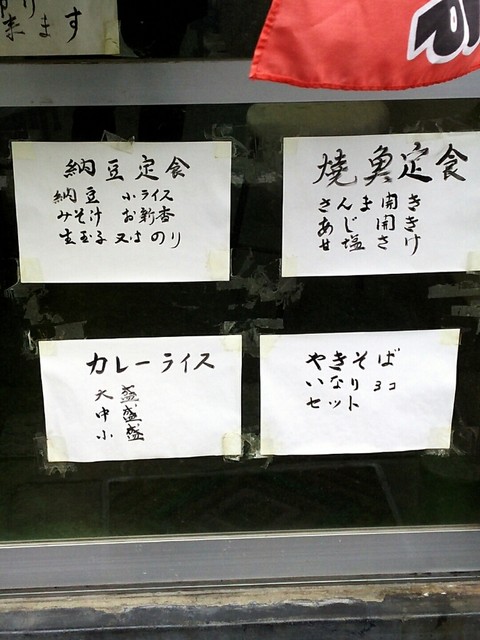 来ます
納豆定食
納豆 小ライス
みそ汁 お新香
生玉子又はのり
焼魚定食
さんま開き
あじ開き
甘塩さけ
カレーライス
大盛
中盛
小盛
やきそば
いなり3コ
セット